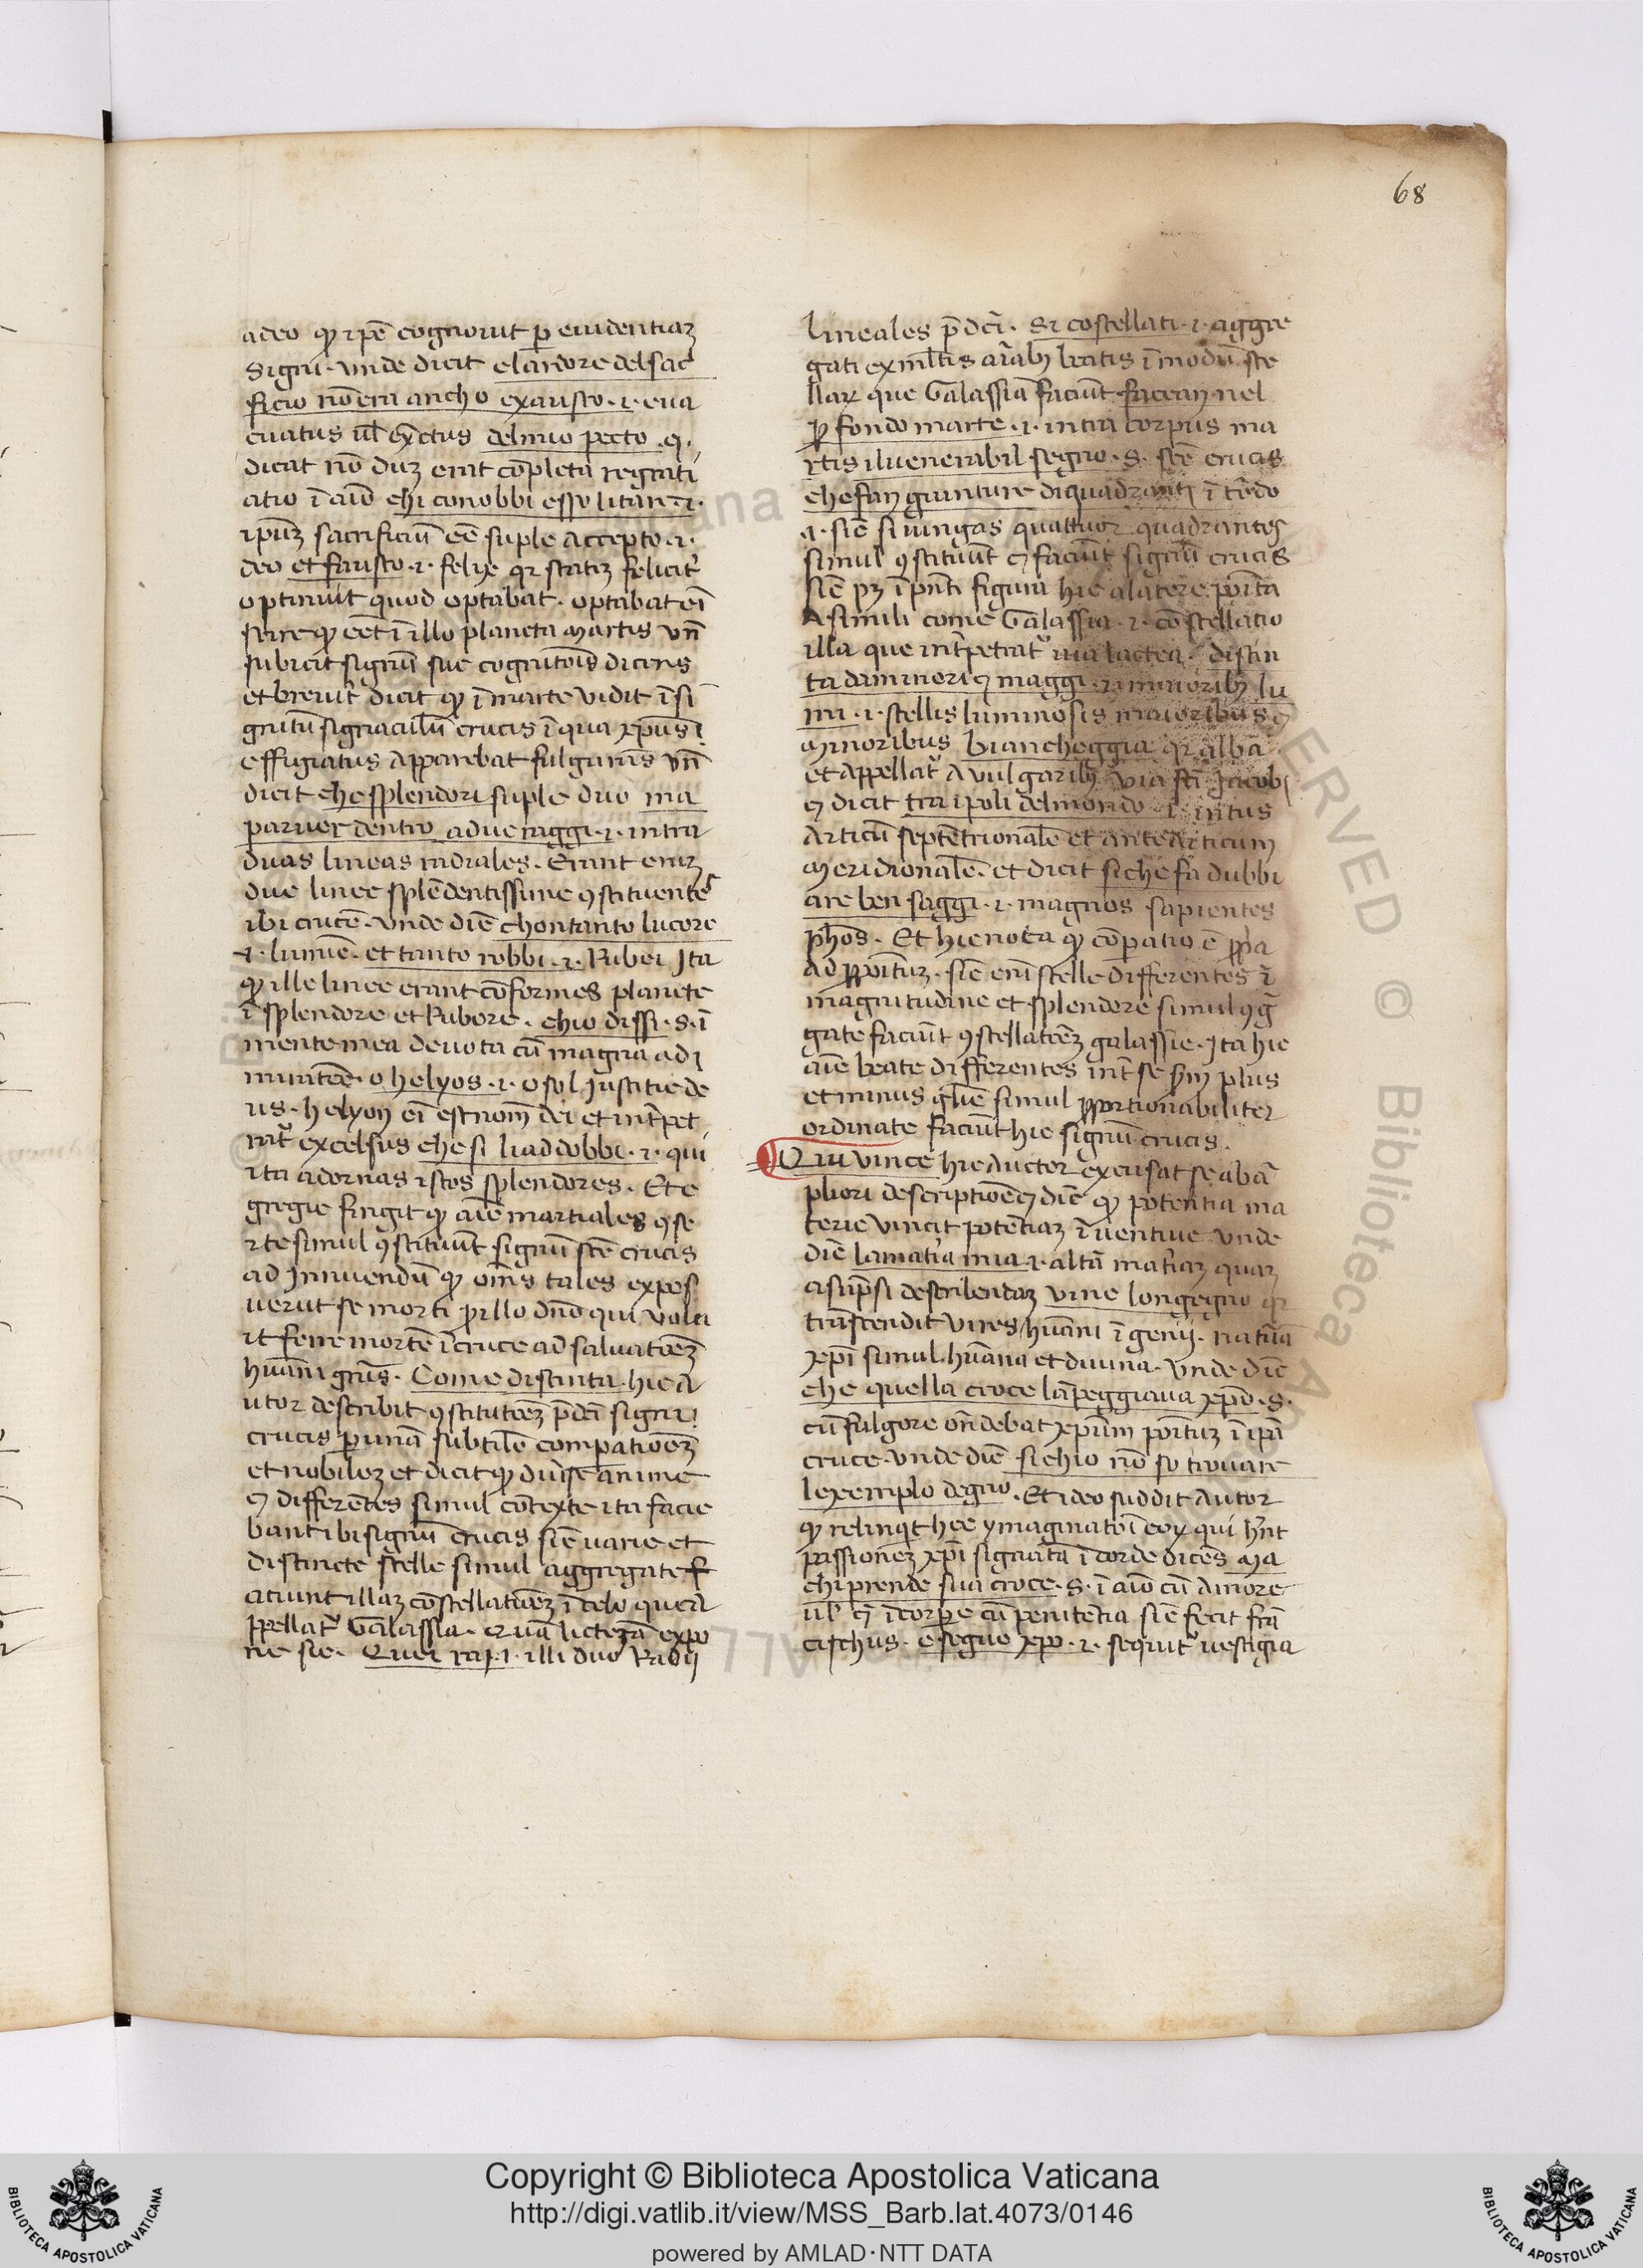 68
adeo qͦ ipē cognouit p̱ euidentiaʒ
signi · unde dicit elardore delsac̄
ficio nōera ancho exausto · i · eua
cuatus ul̄ exc̄tus delmio pecto · q ·
dicat nō duʒ erat cōpleta regrati
atio ī aīo chi conobbi esso litare · i ·
ipūʒ sacrificiū eē suple accepto · i ·
deo et fausto · i · felix qr statiʒ felicit᷑
optinuit quod optabat · optabat eī
scire qͦ eēt ī illo planeta martis vn̄
subicit signū sue cognitōis dicens
et breuit᷑ dicit qͦ ī marte vidit īsi
gnitū signaculū crucis ī qua xp̄us ī
effigiatus apparebat fulgurās vn̄
dicit che splendori suple duo ma
paruer dentro adue raggi · i · intra
duas lineas radiales · Erant eniʒ
due linee splēdentissime ꝯstituentes
ibi crucē · unde diē chontanto lucore
· i · lumīe · et tanto robbi · i · Rubei Ita
qͦ ille linee erant cōformes planete
ī splendore et Rubore · chio dissi · s · ī
mente mea deuota cū magna adi
miratōe · o helyos · i · o sol Justitie de
us · helyon eī est nom̄ dei et int̄pet
rat᷑ excelsus che si liaddobbi · i · qui
ita adornas istos splendores · Et e
gregie fingit qͦ aīe martiales ꝯse
rte simul ꝯstituūt signū scē crucis
ad Innuendū qͦ om̄s tales expos
uerūt se morti p̱ illo dn̄o qui volu
it ferre mortē ī cruce ad saluatōeʒ
hūani gn̄is · Come distinta · hic A
utor describit ꝯstitutōeʒ p̄dc̄i signi
crucis p̱ unā subtilē compatiōeʒ
et nobileʒ et dicit qͦ diuīse anime
⁊ differētes simul cōtexte ita facie
bant ibi signū crucis sic̄ uarie et
distincte stelle simul aggregate f
aciunt illaʒ cōstellatōeʒ ī celo que a
ppellat᷑ Galassia · Quā lictera expo
ne sic · Quei rai · i · illi duo Radij
lineales p̄dc̄i · Si costellati · i · aggre
gati ex ml̄tis aīabꝫ beatis ī modū ste
llaꝝ que Galassiā faciūt facean nel
p̱fondo marte · i · intra corpus ma
rtis iluenerabil segno · s · scē crucis
che fan giunture diquadranti ī tōdo
· i · sic̄ si iungas quattuor quadrantes
simul ꝯstituūt ⁊ faciūt signū crucis
sic̄ pʒ ī pn̄ti figura hic alatere poīta
A simili come Galassia · i · cōstellatio
illa que int̄petrat᷑ uia lactea · distin
ta daminori ⁊ maggi · i · minoribꝫ lu
mi · i · stellis luminosis maioribus ⁊
minoribus biancheggia qr alba
et appellat᷑ A vulgaribꝫ via scī Jacobi
⁊ dicit tra ipoli delmondo · i · intus
Articū septētrionalē et AnteArticum
meridionalē · et dicit siche fa dubbi
are ben saggi · i · magnos sapientes
phōs · Et hic nota qͦ cōpatio ē p̱pa
ad p̱poītuʒ · sic̄ enī stelle differentes ī
magnitudine et splendore simul ꝯg̱
gate faciūt ꝯstellatōeʒ galassie · Ita hic
aīe beate differentes int̄ se sm̄ plus
et minus gl̄ie simul p̱portionabiliter
ordinate faciūt hic signū crucis ·
Qui vince hic Auctor excusat se ab ā
pliori descriptiōe ⁊ diē qͦ potentia ma
terie vincit potētiaʒ īuentiue · vnde
diē lamat᷑ia mia · i · altā mat᷑iaʒ quaʒ
asūpsi describendaʒ vine longegno qr
trāscendit vires hūani īgenij · naturā
xp̄i simul · hūana et diuina · vnde diē
che quella croce lāpeggiaua xp̄o · s ·
cū fulgore on̄debat xp̄um poītuʒ ī ipā
cruce · vnde diē sichio nō so trouare
lexemplo degno · Et ideo suddit autor
qͦ relinqt hec ymaginatōi eoꝝ qui hn̄t
passioneʒ xp̄i signatā ī corde dicēs ma
chi prende sua croce · s · ī aīo cū Amore
ul̄ ⁊ ī corpe cū penitētia sic̄ fecit frā
cischus · e segue xpo · i · sequit᷑ uestigia
Copyright © Biblioteca Apostolica Vaticana
http://digi.vatlib.it/view/MSS_Barb.lat.4073/0146
powered by AMLAD·NTT DATA